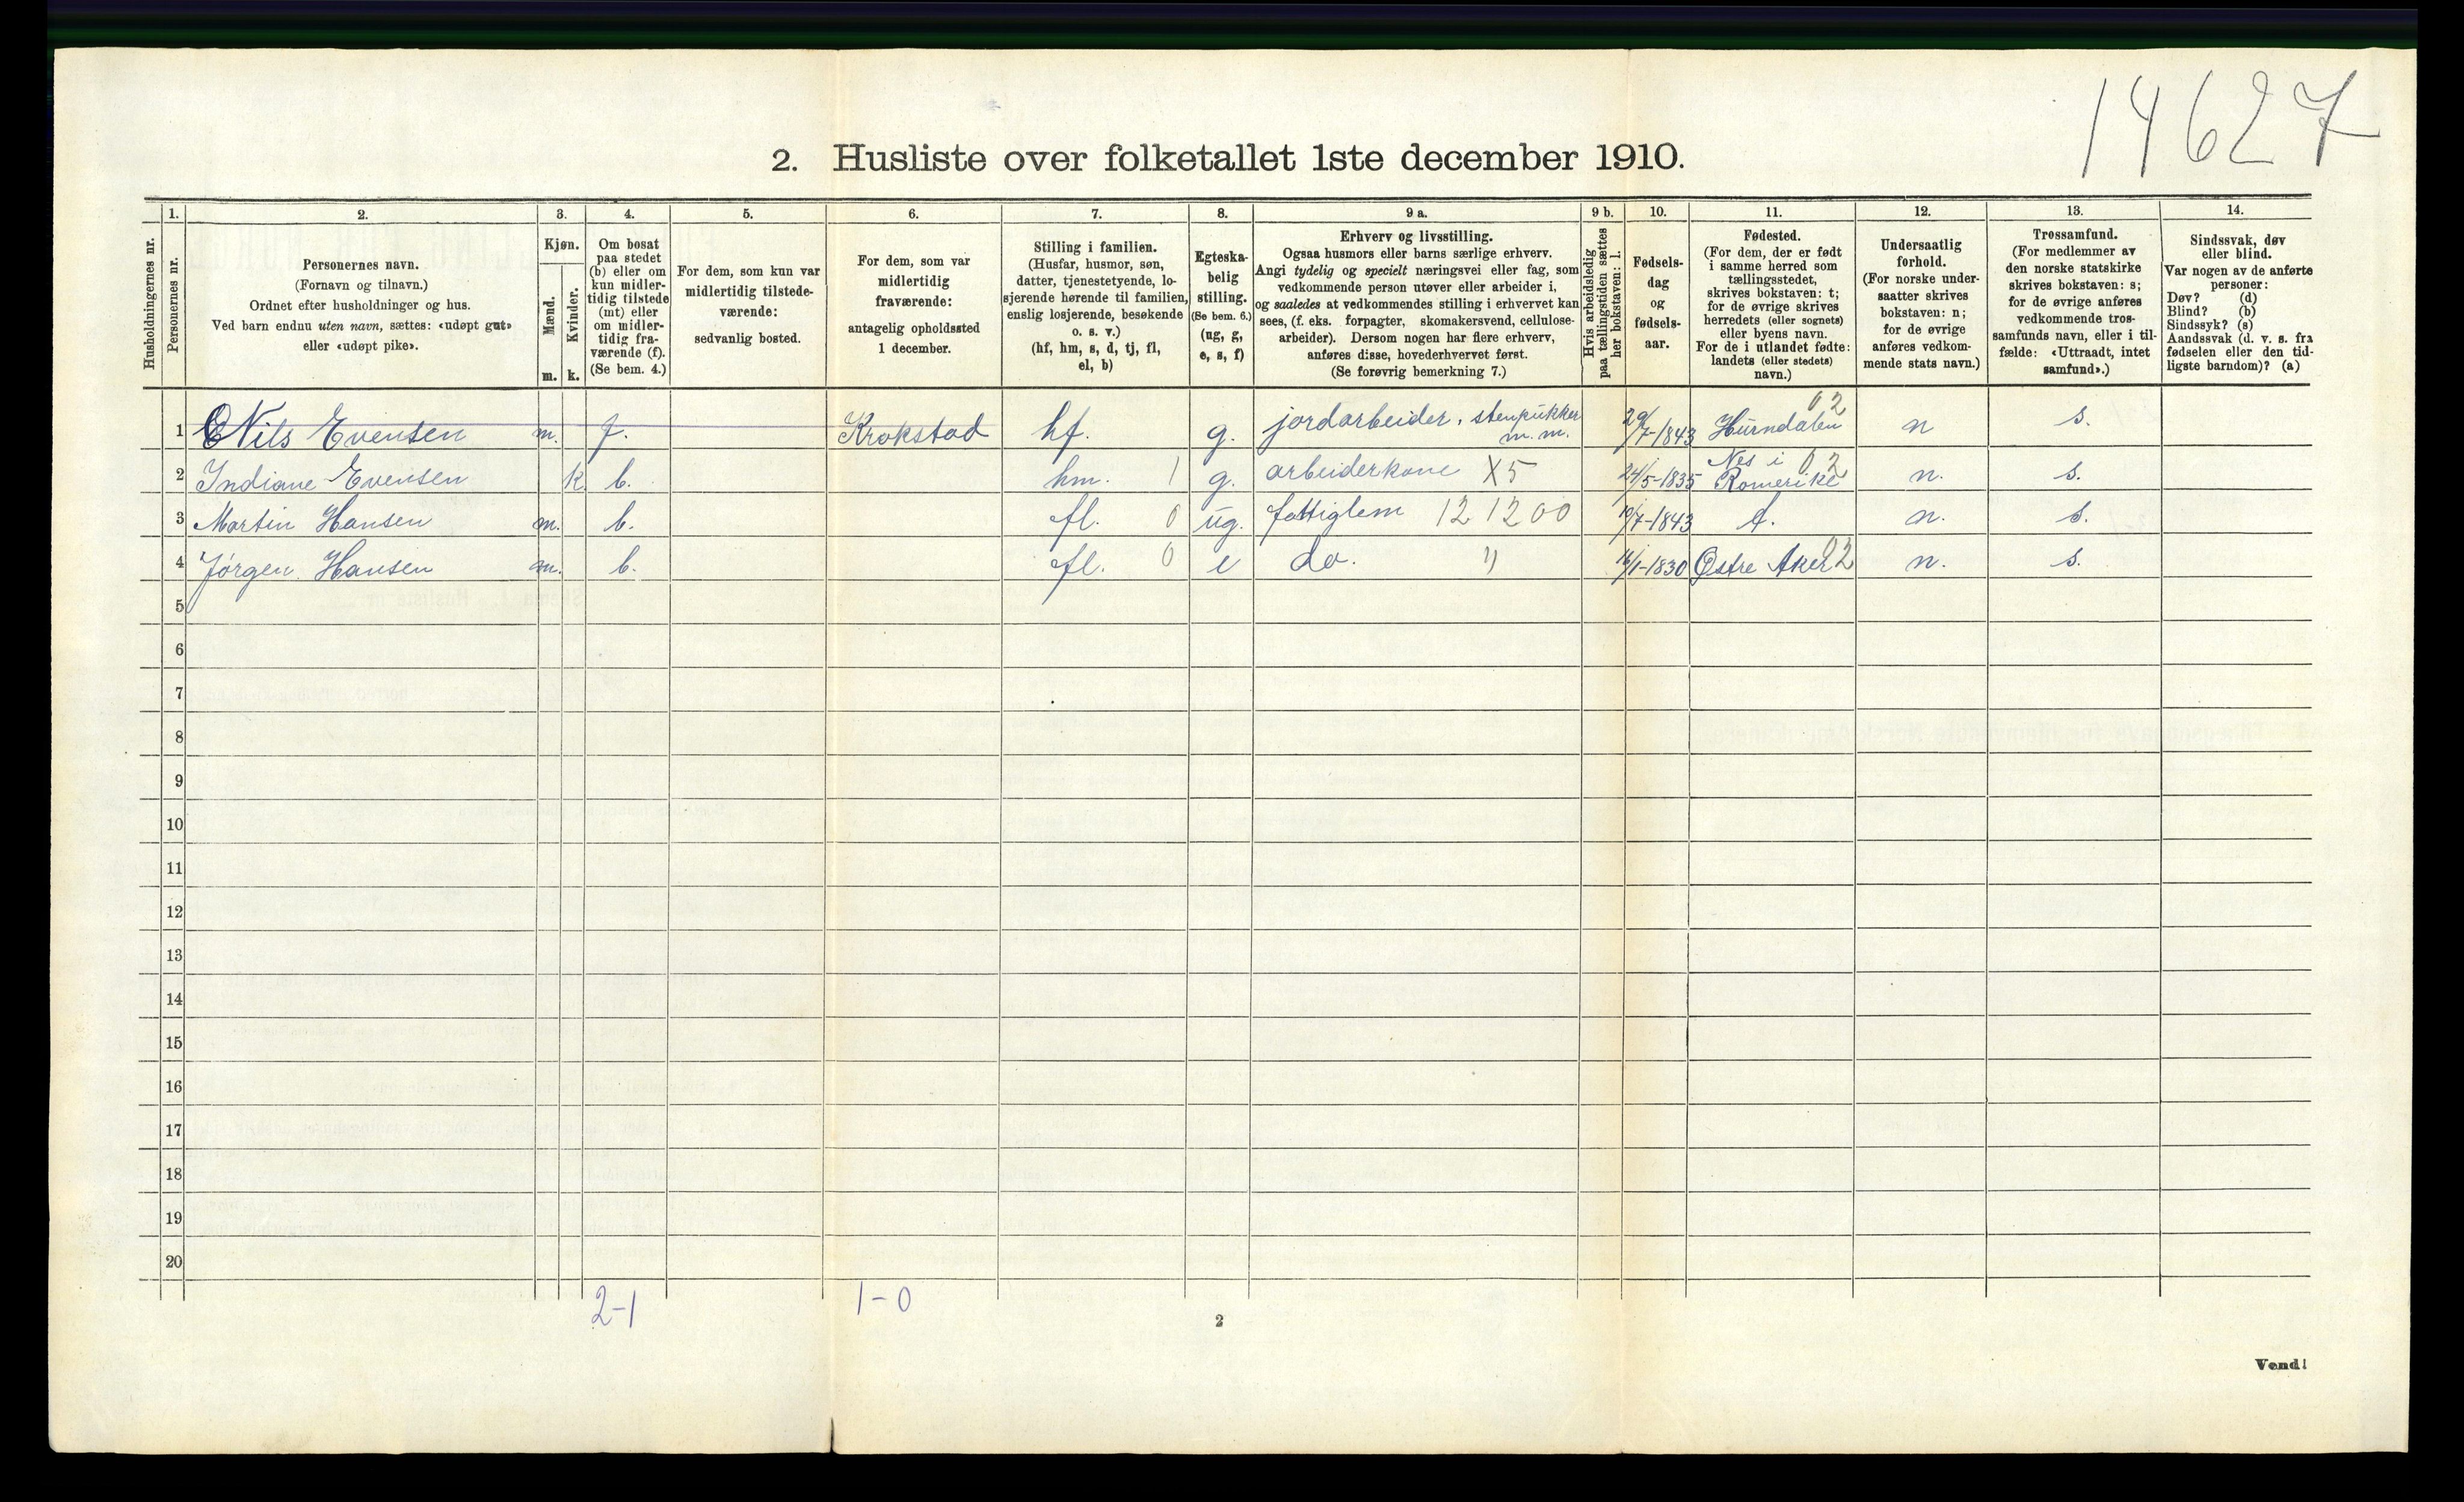 14627
2. Husliste over folketallet 1ste december 1910.
Husholdningernes nr.
1.
Personernes nr.
2.
Personernes navn.
(Fornavn og tilnavn.)
Ordnet efter husholdninger og hus.
Ved barn endnu uten navn, sættes: «udøpt gut»
eller «udøpt pike».
3.
Kjøn.
Mænd.
Kvinder.
m. k.
4.
Om bosat
paa stedet
(b) eller om
kun midler-
tidig tilstede
(mt) eller
om midler-
tidig fra-
værende (f).
(Se bem. 4.)
5.
For dem, som kun var
midlertidig tilstede-
værende:
sedvanlig bosted.
6.
For dem, som var
midlertidig
fraværende:
antagelig opholdssted
1 december.
7.
Stilling i familien.
(Husfar, husmor, søn,
datter, tjenestetyende, lo-
sjerende hørende til familien,
enslig losjerende, besøkende
o. s. v.)
(hf, hm, s, d, tj, fl,
el, b)
8.
Egteska-
belig
stilling.
(Se bem. 6.)
(ug, g,
e, s, f)
9 a.
Erhverv og livsstilling.
Ogsaa husmors eller barns særlige erhverv.
Angi tydelig og specielt næringsvei eller fag, som
vedkommende person utøver eller arbeider i,
og saaledes at vedkommendes stilling i erhvervet kan
sees, (f. eks. forpagter, skomakersvend, cellulose-
arbeider). Dersom nogen har flere erhverv,
anføres disse, hovederhvervet først.
(Se forøvrig bemerkning 7.)
9 b.
Hvis arbeidsledig
paa tællingstiden sættes
her bokstaven: l.
10.
Fødsels-
dag
og
fødsels-
aar.
11.
Fødested.
(For dem, der er født
i samme herred som
tællingsstedet,
skrives bokstaven: t;
for de øvrige skrives
herredets (eller sognets)
eller byens navn.
For de i utlandet fødte:
landets (eller stedets)
navn.)
12.
Undersaatlig
forhold.
(For norske under-
saatter skrives
bokstaven: n;
for de øvrige
anføres vedkom-
mende stats navn.)
13.
Trossamfund.
(For medlemmer av
den norske statskirke
skrives bokstaven: s;
for de øvrige anføres
vedkommende tros-
samfunds navn, eller i til-
fælde: «Uttraadt, intet
samfund».)
14.
Sindssvak, døv
eller blind.
Var nogen av de anførte
personer:
Døv? (d)
Blind? (b)
Sindssyk? (s)
Aandssvak (d. v. s. fra
fødselen eller den tid-
ligste barndom)? (a)
1 Nils Evensen m. f. Krokstad hf. g. jordarbeider, stenpukker m. m. 29/7-1843 Hurndalen 02 n s.
2 Indiane Evensen k b. hm. 1 g. arbeiderkone X5 24/5-1835 Nes i Romerike 02 n. s.
3 Martin Hansen m. b. fl. 0 ug. fattiglem 12 12 00 19/7-1843 t. n. s.
4 Jørgen Hansen m. b. fl. 0 e do. " 16/1-1830 Østre Aker 02 n. s.
5
6
7
8
9
10
11
12
13
14
15
16
17
18
19
20
2-1 1-0
2
Vend!